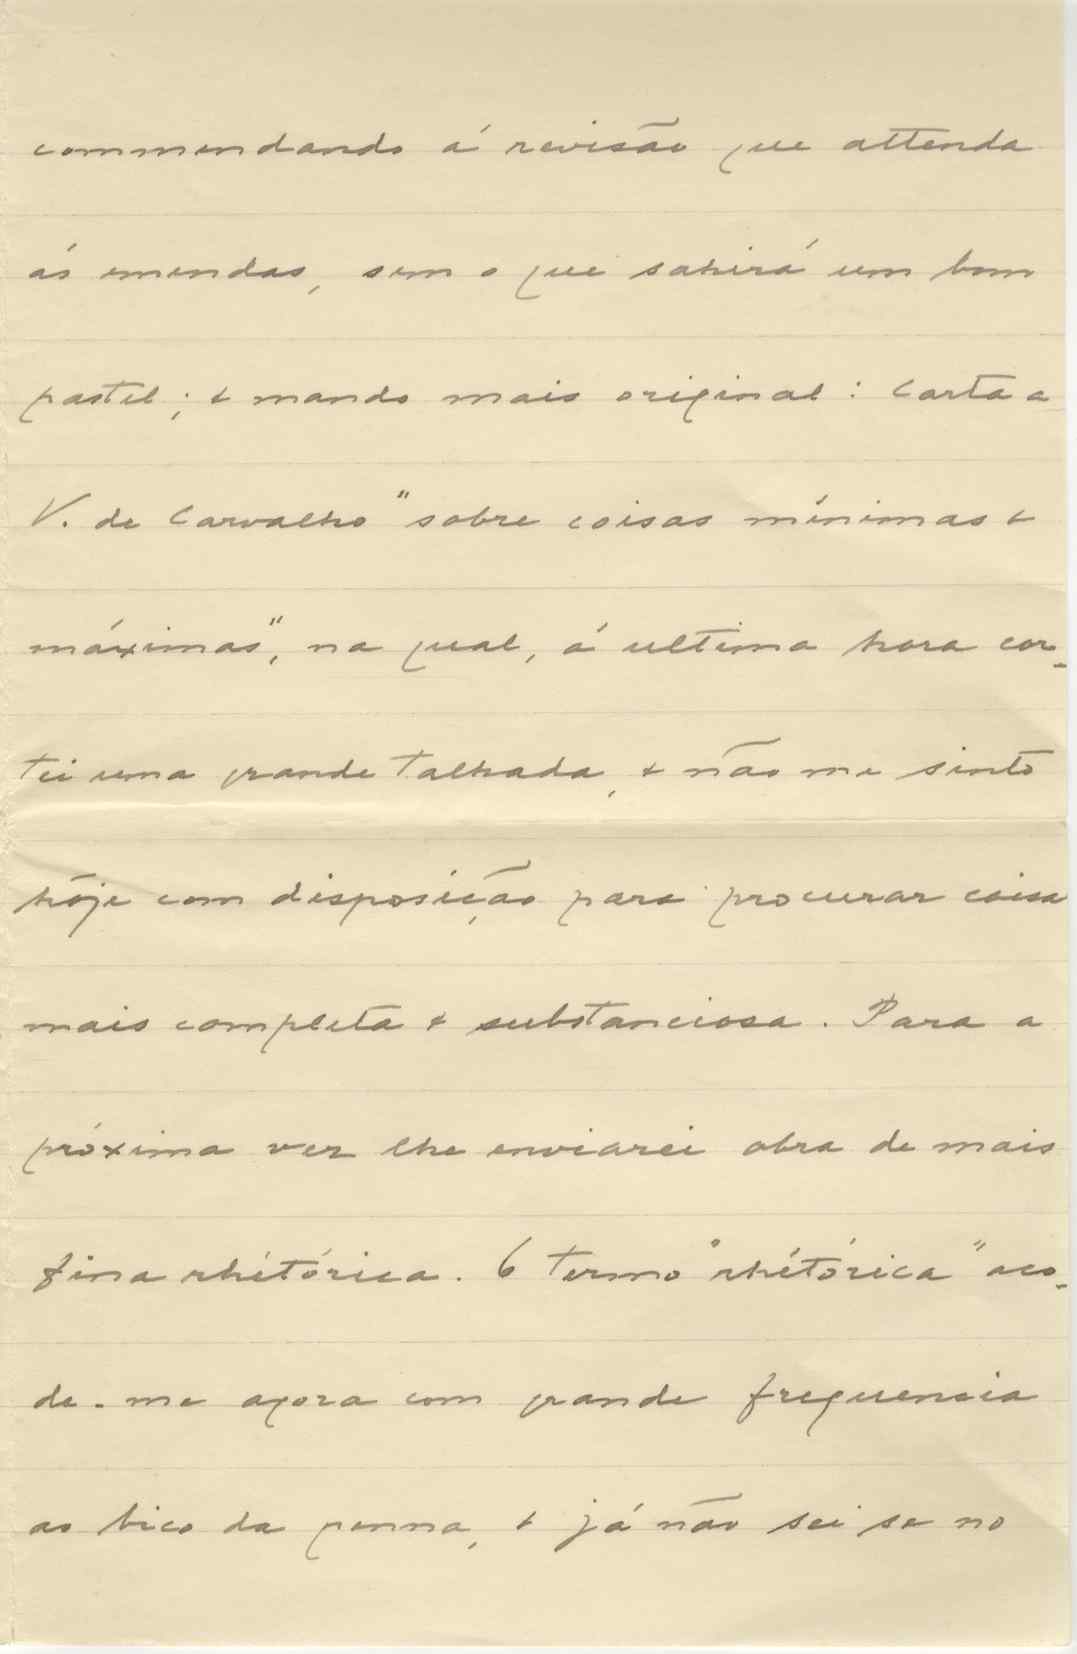 commendando á revisão que attenda
ás emendas, sem o que sahirá um bom
pastel; & mando mais original: Carta a
V. de Carvalho "sobre coisas mínimas &
máximas", na qual, á ultima hora cor-
tei uma grande talhada, & não me sinto
hôje com disposição para procurar coisa
mais completa & substanciosa. Para a
próxima vez lhe enviarei obra de mais
fina rhétórica. O termo "rhétórica" aco-
de-me agora com grande frequencia
ao bico da penna, & já não sei se no